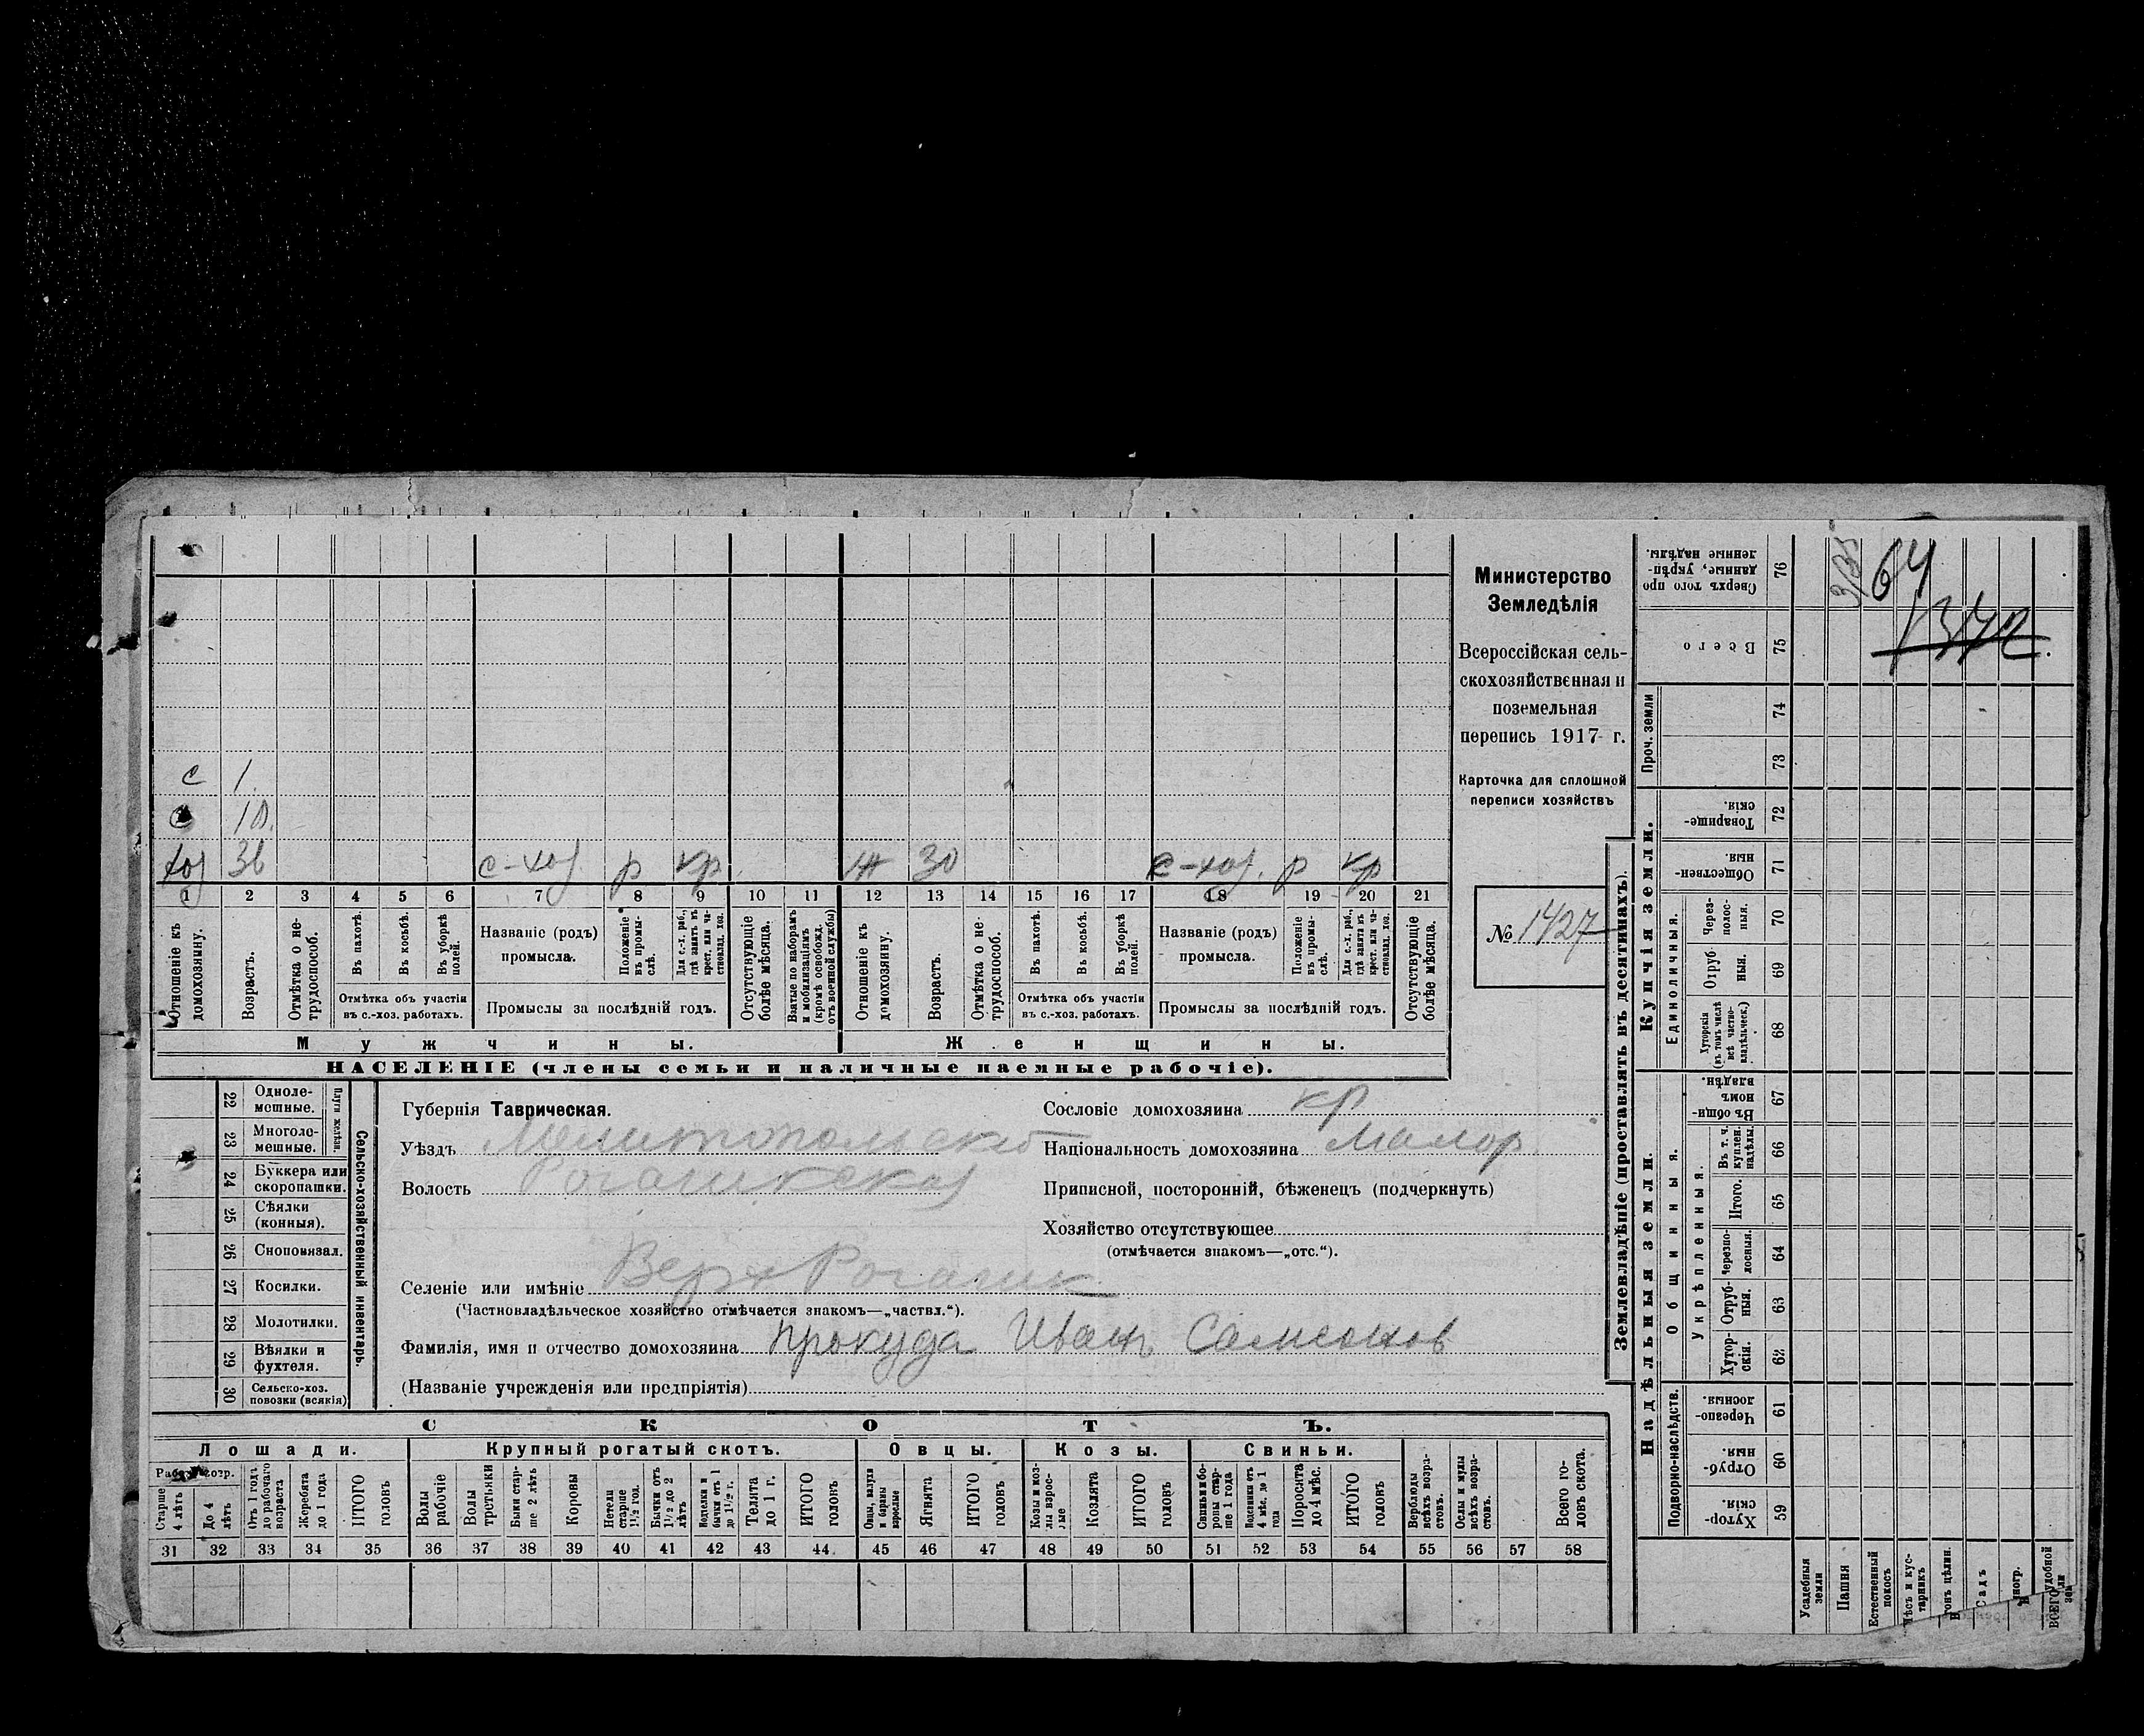 Министерство
Земледѣлія
Всероссійская сель-
скохозяйственная и
поземельная
перепись 1917 г.
Карточка для сплошной
переписи хозяйствъ
№ 1427
с 1.
с 10.
хоз 36 с-хоз. р кр. ж 30 с-хоз. р кр
1 2 3 4 5 6 7 8 9 10 11 12 13 14 15 16 17 18 19 20 21
Отношеніе къ домохозяину.
Возрастъ.
Отмѣтка о не-трудоспособ.
Въ пахотѣ.
Въ косьбѣ.
Въ уборкѣ полей.
Отмѣтка объ участіи
въ с.-хоз. работахъ.
Названіе (родъ)
промысла.
Положеніе въ промы-слѣ.
Для с.-х. раб., гдѣ занятъ въ крест. или ча-стновлад. хоз.
Промыслы за послѣдній годъ.
Отсутствующіе болѣе мѣсяца.
Взятые по наборамъ и мобилизаціямъ (кромѣ освобожд. отъ военной службы)
Отношеніе къ домохозяину.
Возрастъ.
Отмѣтка о не-трудоспособ.
Въ пахотѣ.
Въ косьбѣ.
Въ уборкѣ полей.
Отмѣтка объ участіи
въ с.-хоз. работахъ.
Названіе (родъ)
промысла.
Положеніе въ промы-слѣ.
Для с.-х. раб., гдѣ занятъ въ крест. или ча-стновлад. хоз.
Промыслы за послѣдній годъ.
Отсутствующіе болѣе мѣсяца.
Мужчины. Женщины.
НАСЕЛЕНІЕ (члены семьи и наличные наемные рабочіе).
Сельско-хозяйственный инвентарь.
Плуги желѣзн.
22 Одноле-мешные.
23 Многоле-мешные.
24 Буккера или скоропашки.
25 Сѣялки (конныя).
26 Сноповязал.
27 Косилки.
28 Молотилки.
29 Вѣялки и фухтеля.
30 Сельско-хоз. повозки (всякія)
Губернія Таврическая.
Уѣздъ Мелитопольскій
Волость Рогачикская
Селеніе или имѣніе Верх Рогачик
(Частновладѣльческое хозяйство отмѣчается знакомъ—„частвл.“).
Фамилія, имя и отчество домохозяина Прокуда Иван Самсонов
(Названіе учрежденія или предпріятія)
Сословіе домохозяина кр
Національность домохозяина Малор.
Приписной, посторонній, бѣженецъ (подчеркнуть)
Хозяйство отсутствующее
(отмѣчается знакомъ—„отс.“).
СКОТЪ.
Лошади. Крупный рогатый скотъ. Овцы. Козы. Свиньи.
Старше 4 лѣтъ
До 4 лѣтъ
Отъ 1 года до рабочаго возраста
Жеребята до 1 года
ИТОГО головъ
Волы рабочіе
Волы третьяки
Быки стар-ше 2 лѣтъ
Коровы
Нетели старше 1½ год.
Бычки отъ 1½ до 2 лѣтъ
Телята до 1 г.
ИТОГО головъ
Ягнята
ИТОГО головъ
Козы и коз-лы взрос-лые
Козлята
ИТОГО головъ
Свиньи и бо-ровы стар-ше 1 года
Подсвинки отъ 4 мѣс. до 1 года
Поросята до 4 мѣс.
ИТОГО головъ
Верблюды всѣхъ возра-стовъ.
Ослы и мулы всѣхъ возра-стовъ.
Всего го-ловъ скота.
31 32 33 34 35 36 37 38 39 40 41 42 43 44. 45 46 47 48 49 50 51 52 53 54 55 56 57 58
Землевладѣніе (проставлять въ десятинахъ).
Надѣльныя земли. Купчія земли.
Проч. земли
Подворно-наслѣдств.
Общинныя.
Укрѣпленныя.
Единоличныя.
Сверхъ того про данные, укрѣп-ленные надѣлы. 76
Всего 75
74
73
Товарище-скія. 72
Обществен-ныя 71
Через-полос-ныя. 70
Отруб ныя. 69
Хуторскія (въ томъ числѣ всѣ частно-владѣльческ.) 68
Въ общи-номъ владѣн. 67
Въ т. ч. куплен. надѣлы. 66
Итого. 65
Черезпо-лосныя. 64
Отруб-ныя. 63
Хутор-скія. 62
Черезпо-лосныя 61
Отруб-ныя 60
Хутор-скія 59
Усадебныя земли
Пашня
Естественный покосъ
64